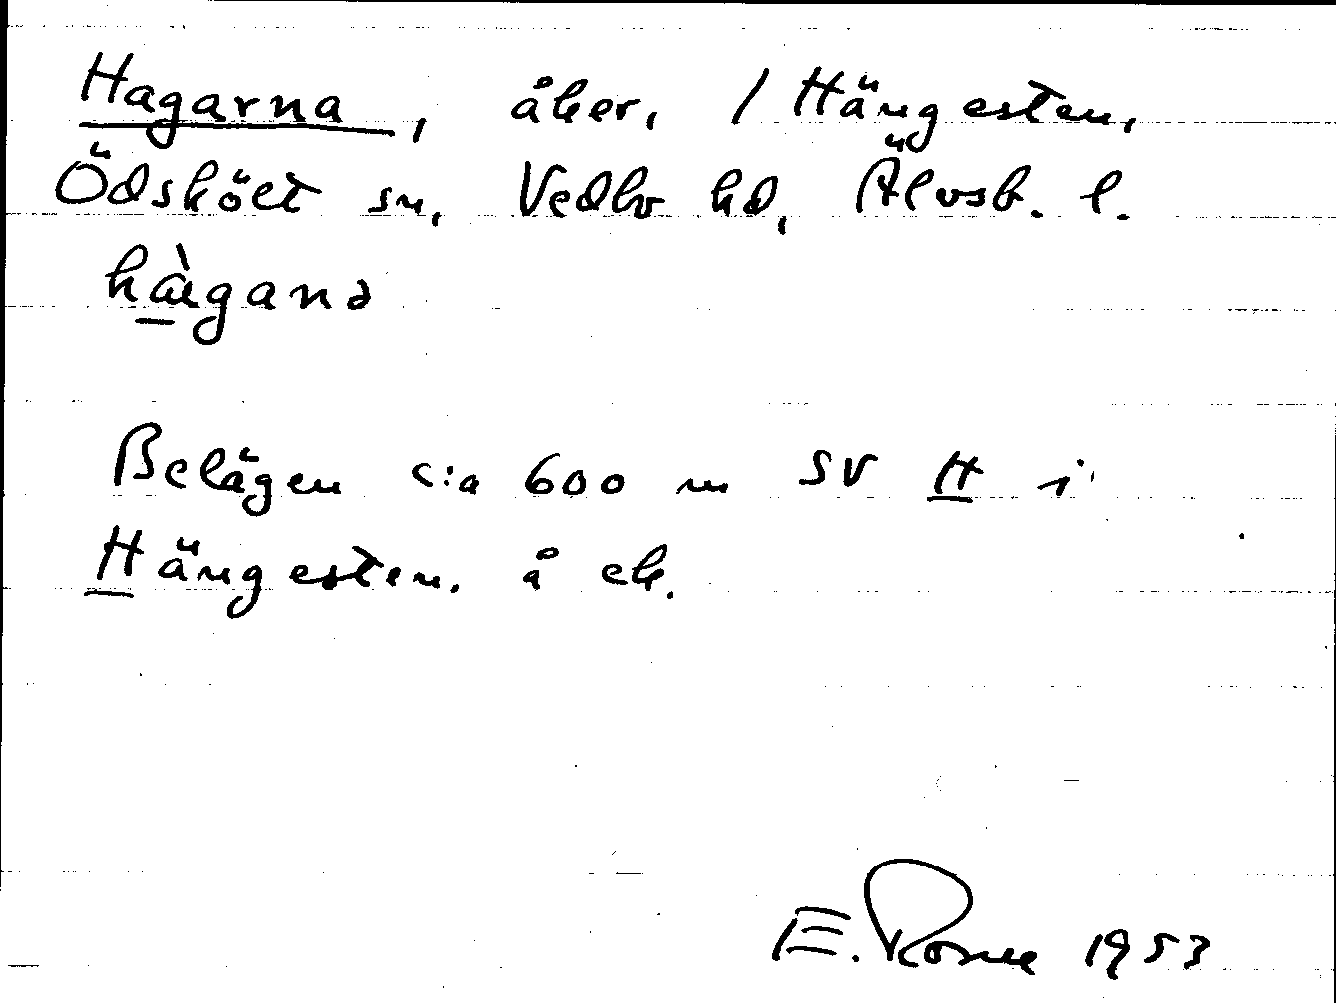 Hagarna, åker, / Hängesten,
Ödskölt sn, Vedbo hd, Älvsb. l.
hàganə
Belägen c:a 600 m SV H i
Hängesten. å ek.
E. 1953